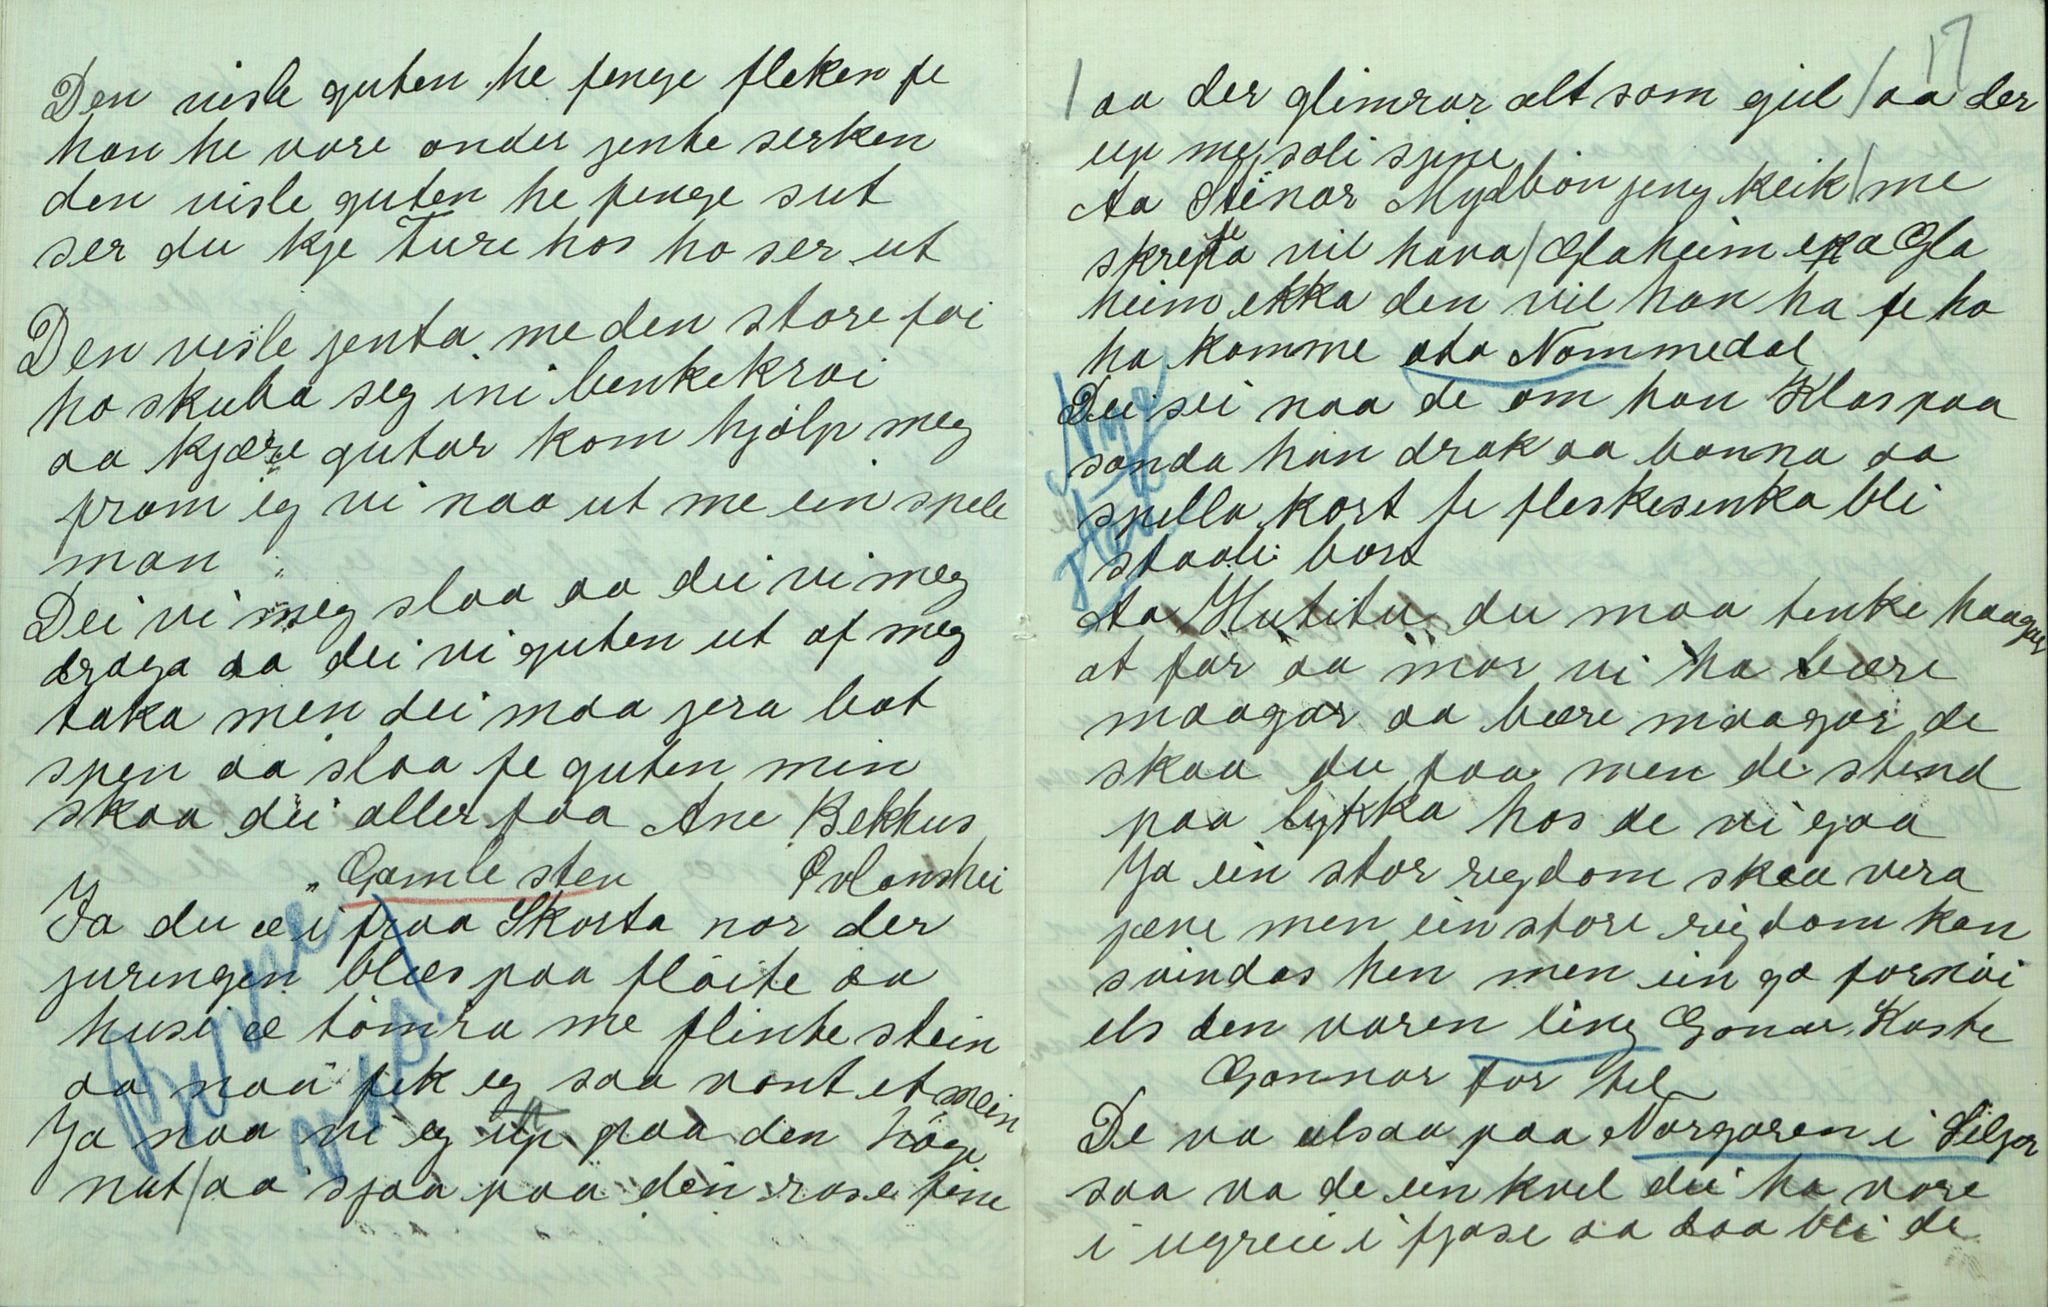 Den visle guten he fenge fleken fe
han he vore onder jente serken
den visle guten he fenge sut
ser du kje Ture hos ho ser ut
Den vesle jenta me den store foi
ho skuba seg ini benkekroi
aa kjære gutar kom hjölp meg
fram eg vi naa ut me ein spele
man
Dei vi meg slaa aa dei vi meg
draga aa dei vi guten ut af meg
taka men dei maa jera bat
spen aa slaa fe guten min
skaa dei aller faa Ane Bekhus
Gamlesten
Ja du æ i fraa Skorta nor der
juringen blæs paa flöite aa
husi æ tömra me flintestein
aa naa fek eg saa vont et mein
Ja naa vi eg up paa den höge
nut / aa sjaa paa den rose fine
17
/ aa der glimrar alt som gul / aa der
up me soli sjine
Aa Steinar Mydbön jeng keik / me
skrefta vil hava / Glaheim ekka Gla
heim ekka den vil han ha fe ho
ha komme ata Nommedal
Dei sei naa de om han Klas paa
sanda han drak aa banna aa
spella kort fe fleskesinka bli
staali bort
Aa Hutitu du maa tenke haagar
at far aa mor vi ha bære
maagar aa bære maagar de
skaa du faa men de stend
paa lykka hos de vi gaa
Ja ein stor rigdom skaa vera
jæve men ein store rigdom kan
svindas hen men ein ga fornöi
els den varen ling Gonar Kaste
Gonnar for tel
De va alsaa paa Norgaren i Seljor
saa va de ein kvel dei ha vore
i ugreie i fjøse aa daa blei de